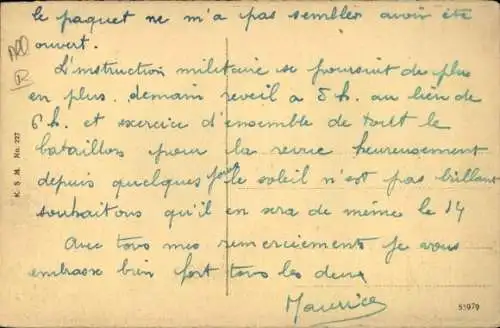 le paquet ne m'a pas semblé avoir été
ouvert.
L'instruction militaire se poursuit de plus
en plus. demain reveil à 5 h. au lieu de
6 h. et exercice d'ensemble de tout le
bataillon pour la revue heureusement
depuis quelques jours le soleil n'est pas brillant
souhaitons qu'il en sera de même le 14
Avec tous mes remerciements je vous
embrasse bien fort tous les deux
Maurice
K. S. M. No. 227
53979